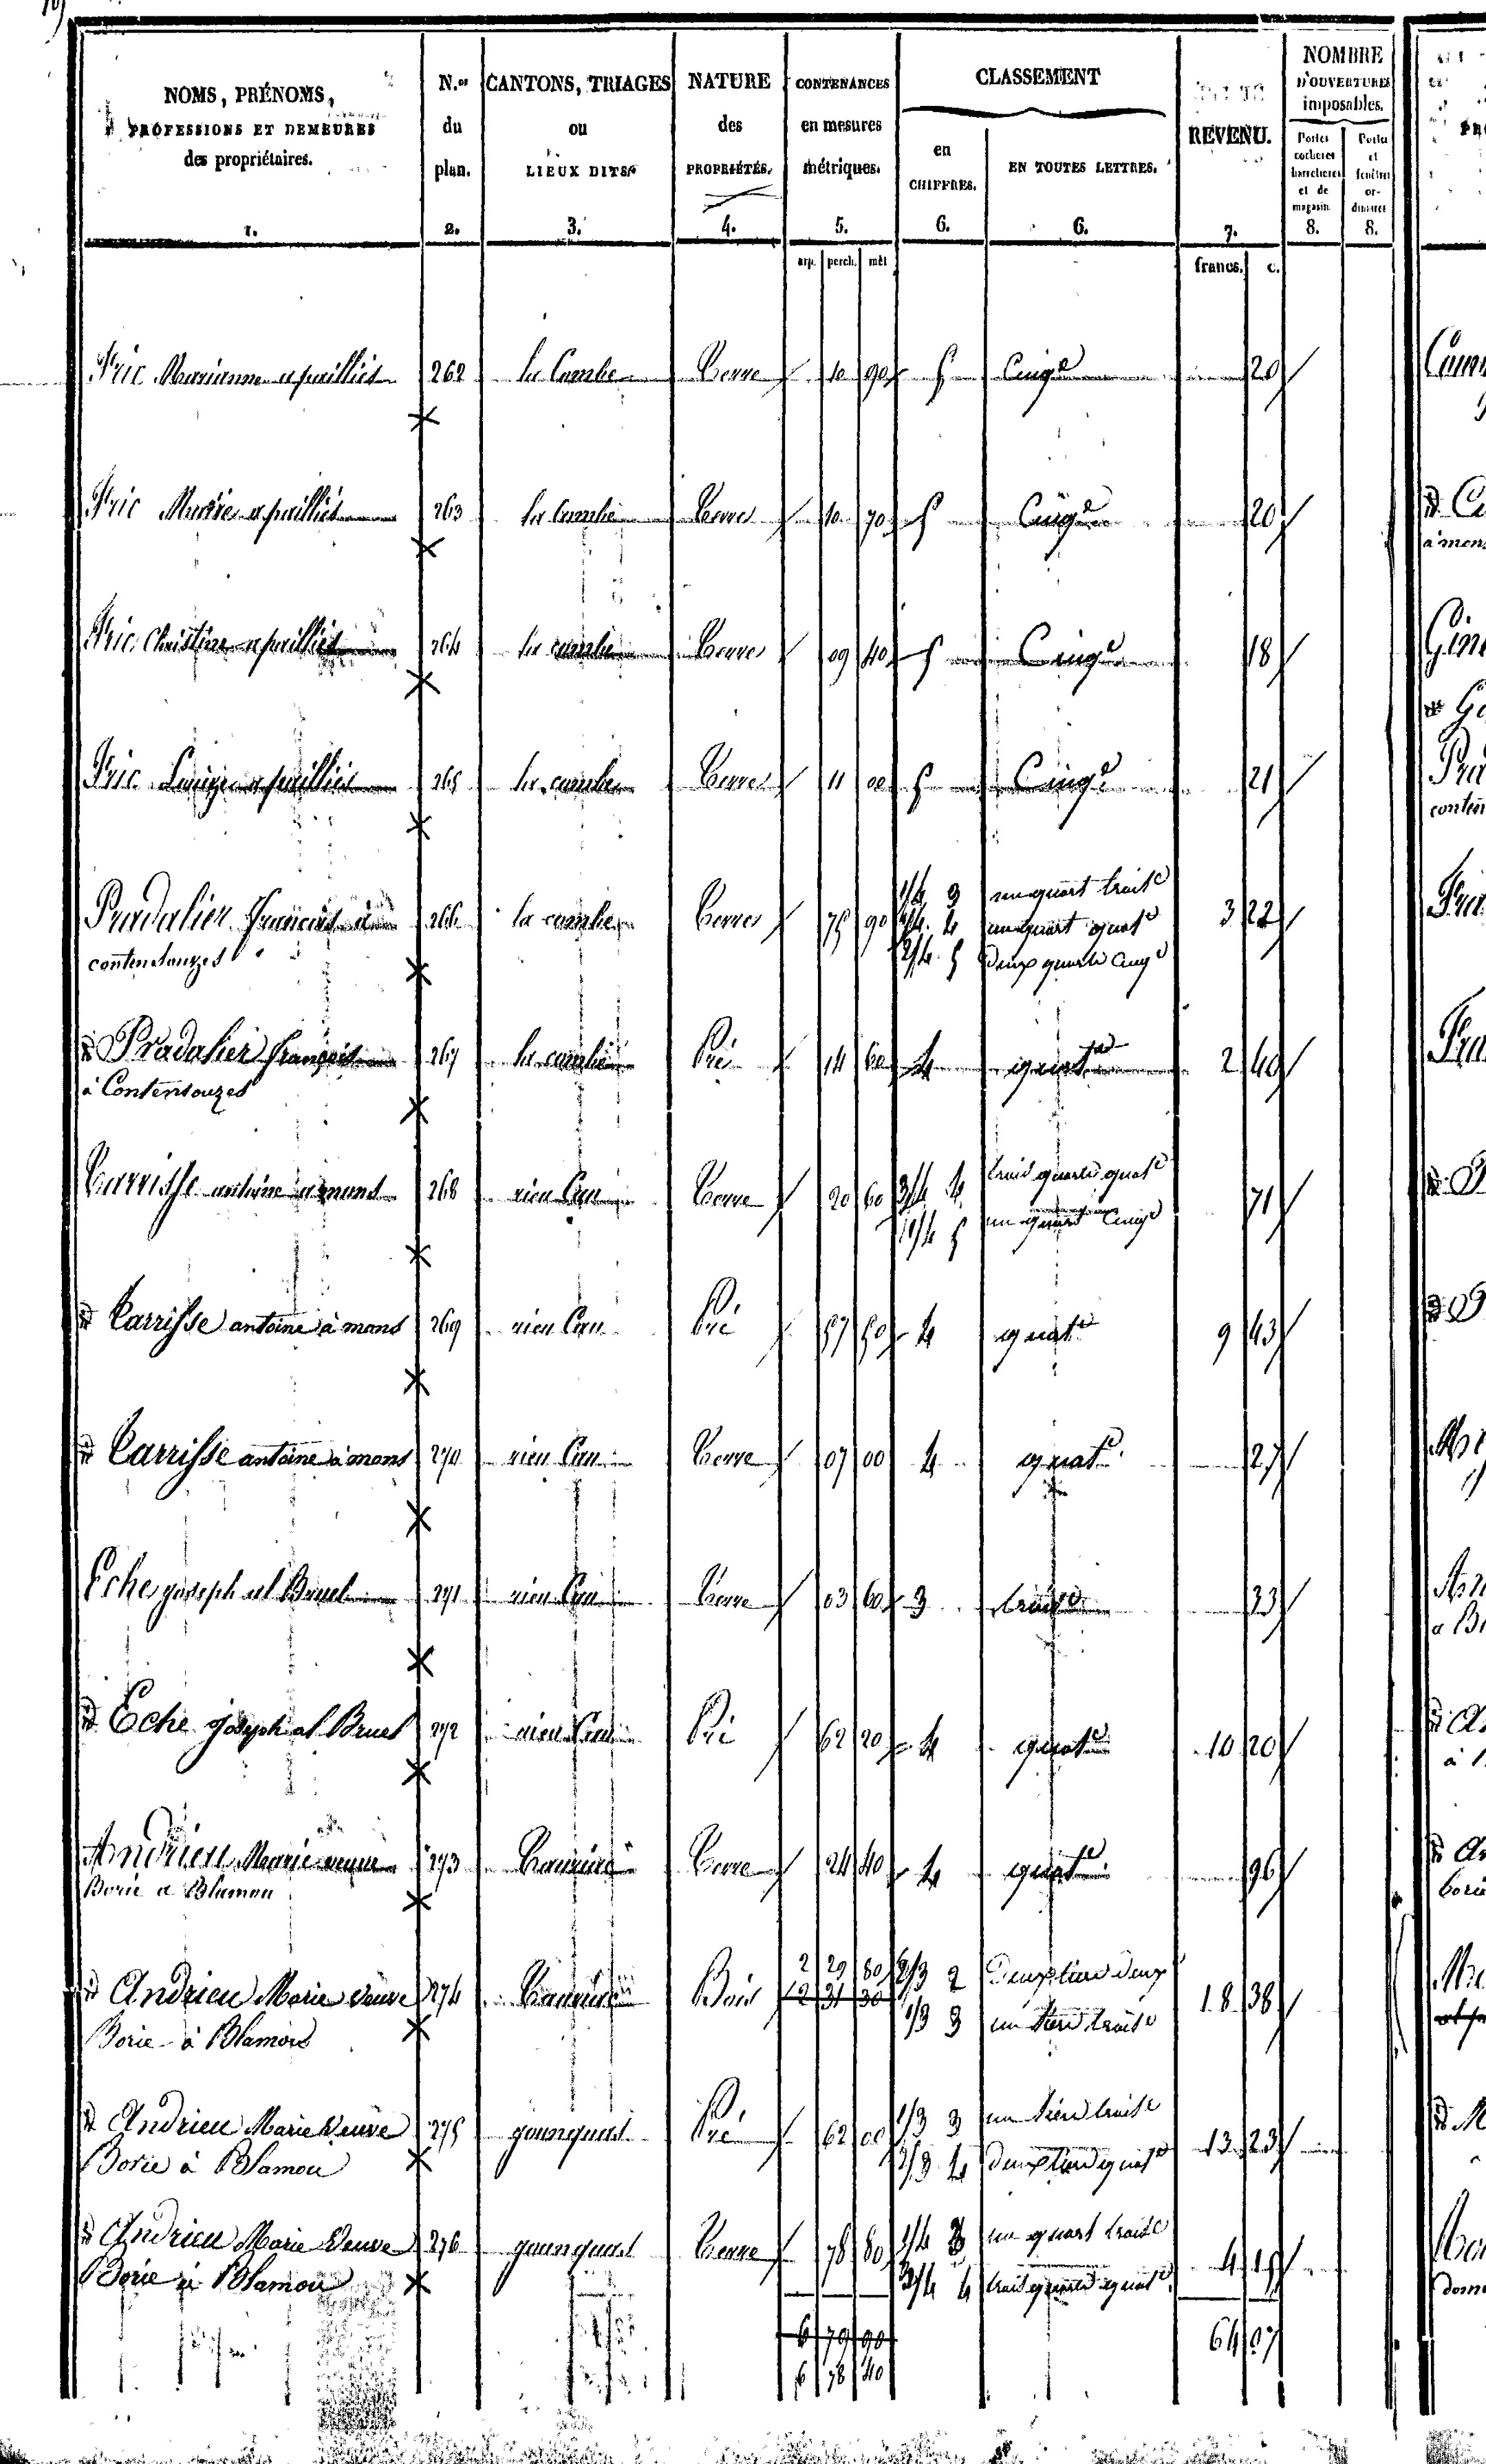 NOMS, PRÉNOMS,
PROFESSIONS ET DEMEURES
des propriétaires.
1.
N.os
du
plan.
2.
CANTONS, TRIAGES
ou
LIEUX DITS.
3.
NATURE
des
PROPRIÉTÉS.
4.
CONTENANCES
en mesures
métriques.
5.
CLASSEMENT
en
CHIFFRES.
6.
EN TOUTES LETTRES.
6.
REVENU.
7.
NOMBRE
D'OUVERTURES
imposables.
Portes
cocheres
et de
magasin.
8.
Portes
et
fenêtres
or-
dinaires
8.
arp. perch. mèt francs. c.
Fric Marianne a pailliés 262 la Combe Terre 10 90 5 Cinqe 20
Fric Marie a pailliés 263 la Combe Terre 10 70 5 Cinqe 20
Fric Christine a pailliés 264 la combe Terre 09 40 5 Cinqe 18
Fric Louize a pailliés 265 la combe Terre 11 00 5 Cinqe 21
Pradalier françois à 266 la combe Terre 75 90 1/4 3 un quart troise 3 22
contensouzes 1/4 4 un quart quate
2/4 5 deux quarts cinqe
d Pradalier françois 267 la combe Pré 14 60 4 quate 2 40
à Contensouzes
Carrisse antoine a mons 268 rieu Cau Terre 20 60 3/4 4 trois quarts quate 71
1/4 5 un quart Cinqe
d Carrisse antoine à mons 269 rieu Cau Pré 57 50 4 quate 9 43
d Carrisse antoine à mons 270 rieu Cau Terre 07 00 4 quate 27
Eche joseph al Bruel 271 rieu Cau Terre 03 60 3 troise 23
d Eche joseph al Bruel 272 rieu Cau Pré 62 20 4 quate 10 20
Andrieu Marie veuve 273 Terre 24 40 4 quate 96
Borie a Blamou
d Andrieu Marie veuve 274 Bois 2 29 80 2/3 2 Deux tiers deuxe 18 38
Borie à Blamou 2 31 30 1/3 3 un tiers troise
d Andrieu Marie Veuve 275 Pré 62 00 1/3 3 un tiers troise 13 23
Borie à Blamou 2/3 4 deux tiers quate
d Andrieu Marie Veuve 276 Terre 78 80 1/4 3 un quart troise 4 15
Borie à Blamou 3/4 4 trois quarts quate
6 79 90 64 07
6 78 40